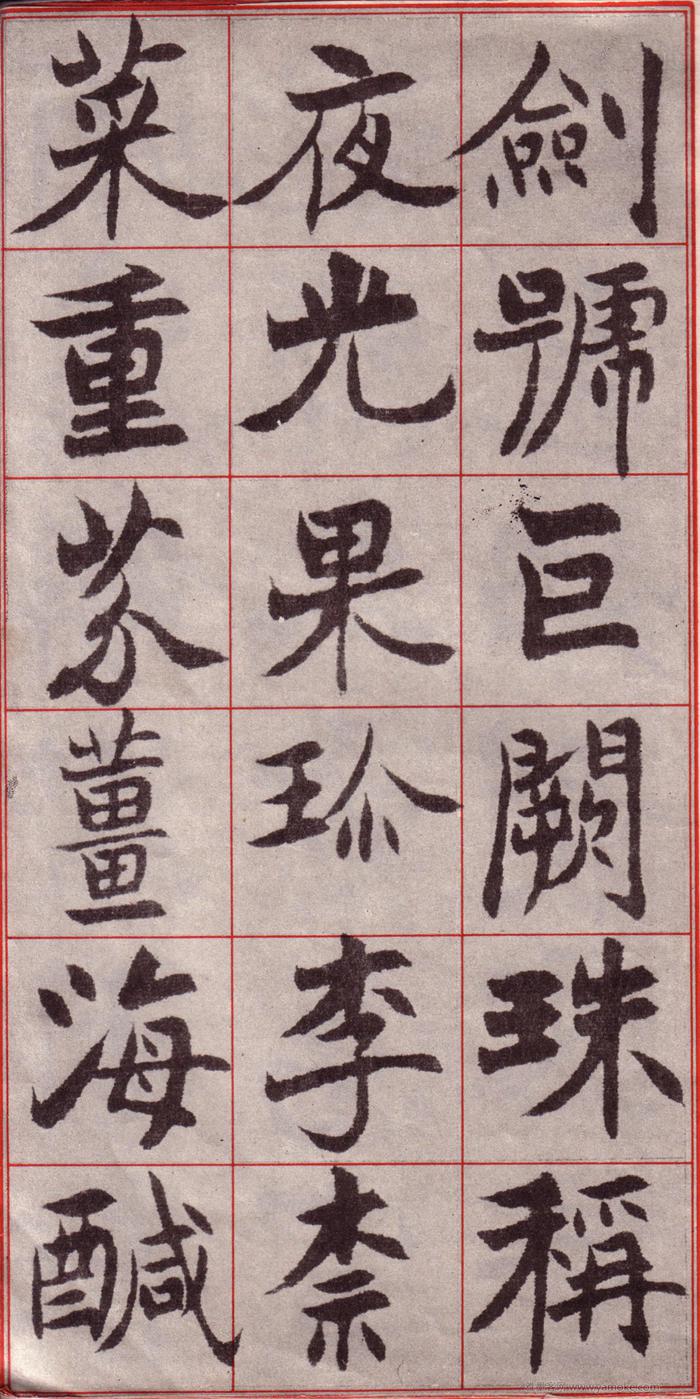 劍號巨闕珠稱
夜光果珎李柰
菜重芥薑海醎
www.yamoke.com